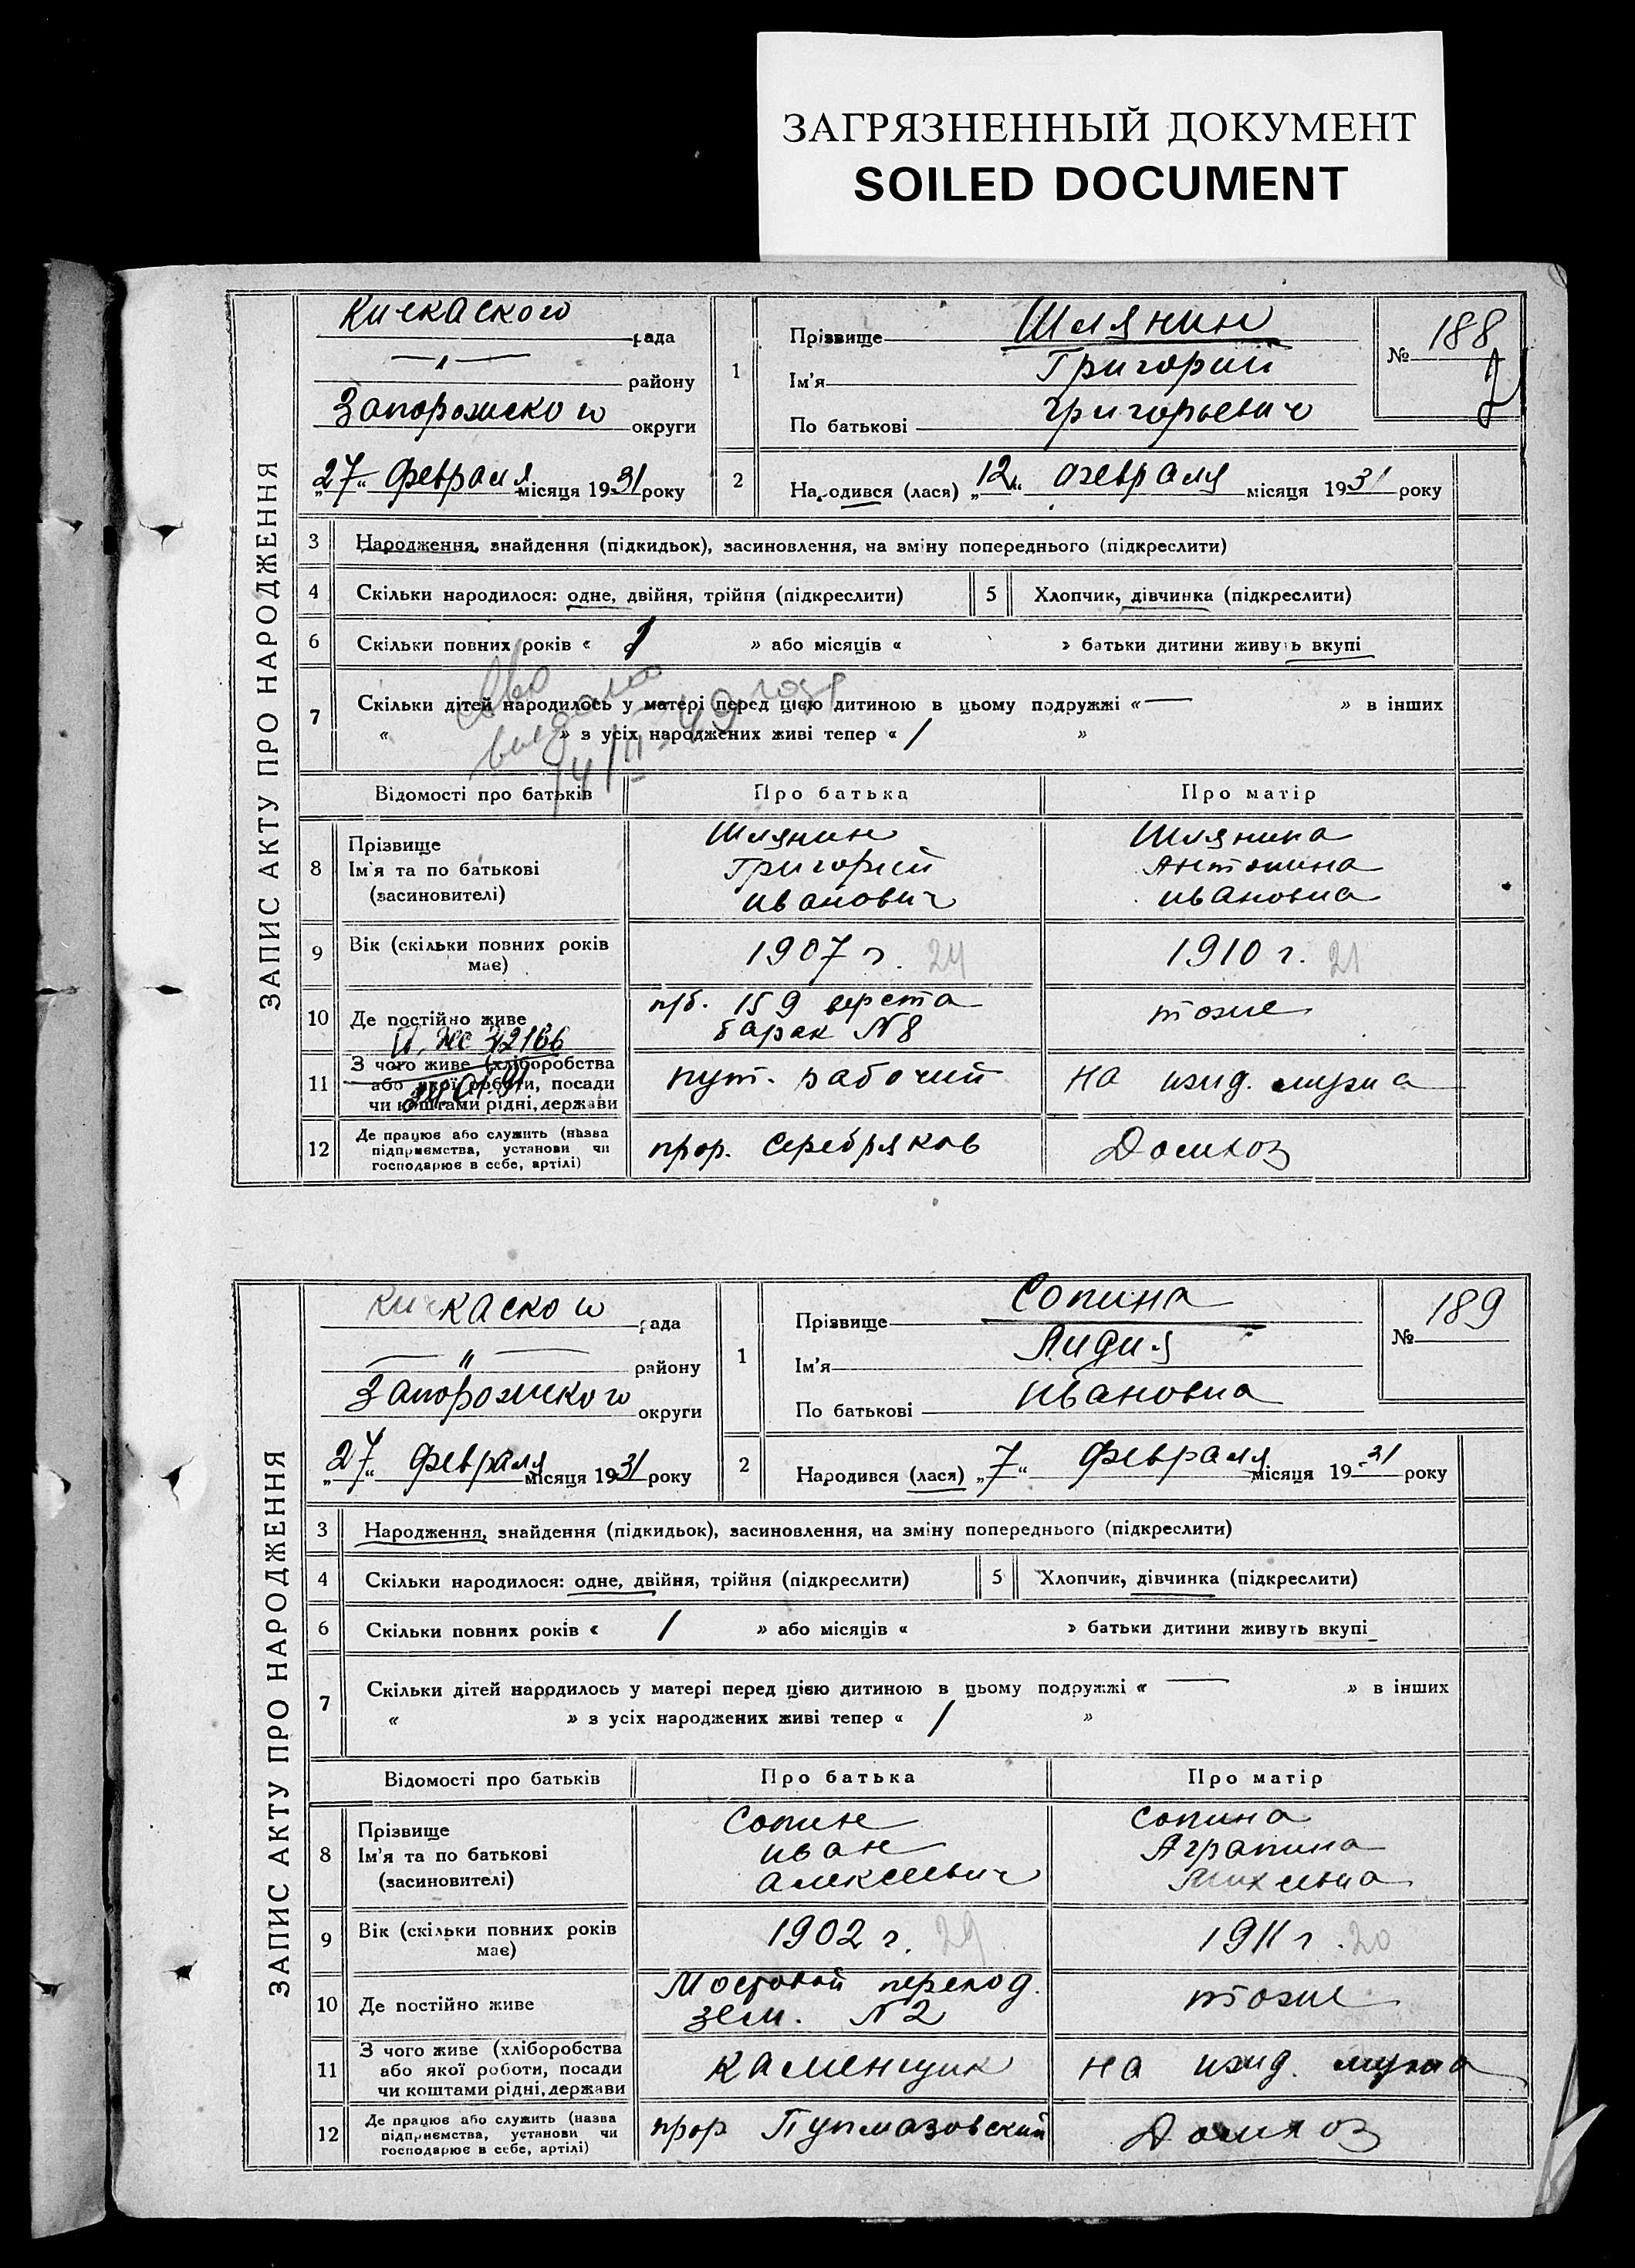 ЗАГРЯЗНЕННЫЙ ДОКУМЕНТ
SOILED DOCUMENT
ЗАПИС АКТУ ПРО НАРОДЖЕННЯ
Кичкаского рада
—"— району
Запорожского округи
„27“ февраля місяця 1931 року
1
Прізвище Шлянин
Ім'я Григорий
По батькові Григорьевич
№ 188
2
Народився (лася) „12“ февраля місяця 1931 року
3 Народження, знайдення (підкидьок), засиновлення, на зміну попереднього (підкреслити)
4 Скільки народилося: одне, двійня, трійня (підкреслити)
5 Хлопчик, дівчинка (підкреслити)
6 Скільки повних років « 1 » або місяців « » батьки дитини живуть вкупі
7 Скільки дітей народилось у матері перед цією дитиною в цьому подружжі « — » в інших
« » з усіх народжених живі тепер « 1 »
Відомості про батьків Про батька Про матір
8 Прізвище Ім'я та по батькові (засиновителі)
Шлянин Григорий Иванович
Шлянина Антонина Ивановна
9 Вік (скільки повних років має)
1907 г. 24
1910 г. 21
10 Де постійно живе
п/б. 159 верста
барак N 8
тоже
11 З чого живе (хліборобства
або якої роботи, посади
чи коштами рідні, держави
пут. рабочий
на ижд. мужа
12 Де працює або служить (назва
підприємства, установи чи
господарює в себе, артілі)
прор. Серебряков
Домхоз
ЗАПИС АКТУ ПРО НАРОДЖЕННЯ
Кичкаского рада
—"— району
Запорожского округи
„27“ февраля місяця 1931 року
1
Прізвище Сопина
Ім'я Лидия
По батькові Ивановна
№ 189
2
Народився (лася) „7“ февраля місяця 1931 року
3 Народження, знайдення (підкидьок), засиновлення, на зміну попереднього (підкреслити)
4 Скільки народилося: одне, двійня, трійня (підкреслити)
5 Хлопчик, дівчинка (підкреслити)
6 Скільки повних років « 1 » або місяців « » батьки дитини живуть вкупі
7 Скільки дітей народилось у матері перед цією дитиною в цьому подружжі « — » в інших
« » з усіх народжених живі тепер « 1 »
Відомості про батьків Про батька Про матір
8 Прізвище Ім'я та по батькові (засиновителі)
Сопин Иван Алексеевич
Сопина Аграпина
9 Вік (скільки повних років має)
1902 г. 29
1911 г. 20
10 Де постійно живе
Мостовой переход.
зем. N 2
тоже
11 З чого живе (хліборобства
або якої роботи, посади
чи коштами рідні, держави
каменщик
на ижд. мужа
12 Де працює або служить (назва
підприємства, установи чи
господарює в себе, артілі)
прор
Домхоз